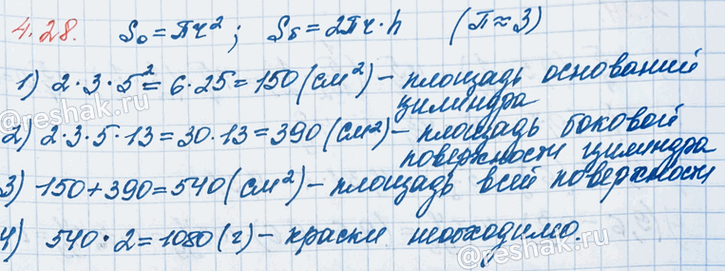 4.28. Sо = πr²; Sб = 2πr·h (π≈3)
1) 2·3·5² = 6·25 = 150 (см²) – площадь оснований
цилиндра
2) 2·3·5·13 = 30·13 = 390 (см²) – площадь боковой
поверхности цилиндра
3) 150 + 390 = 540 (см²) – площадь всей поверхности
4) 540·2 = 1080 (г) – краски необходимо.
©reshak.ru